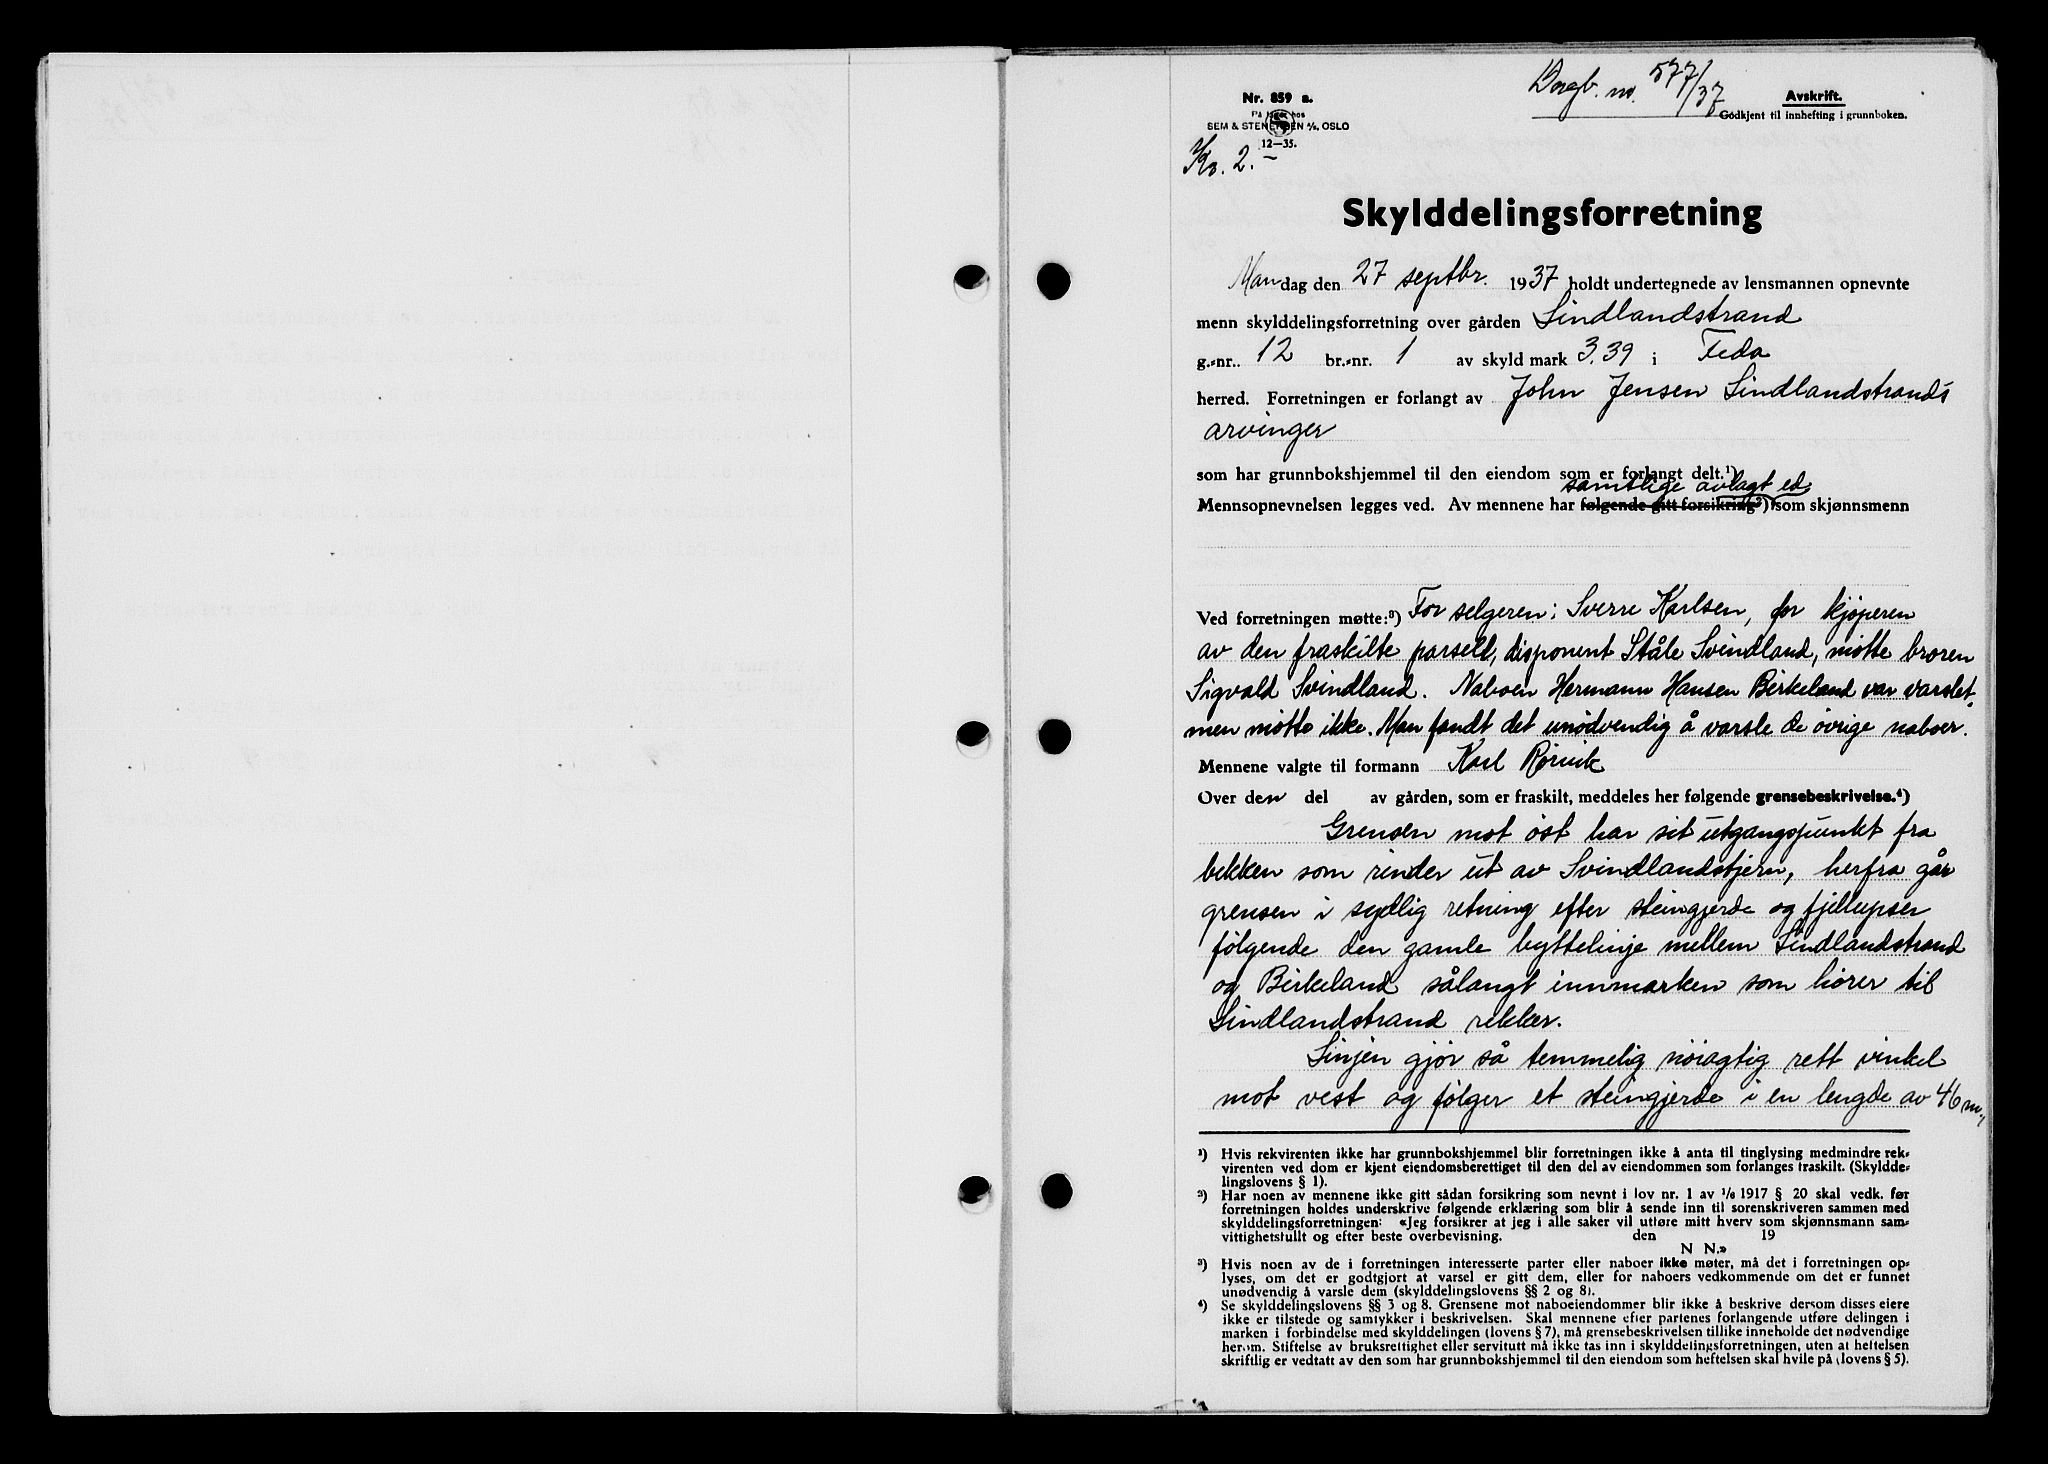 Dagb. nr. 577/37
Nr. 859 a.
På lager hos
SEM & STENERSEN A/S, OSLO
12—35.
Kr. 2.–
Avskrift.
Godkjent til innhefting i grunnboken.
Skylddelingsforretning
Mandag den 27 septbr. 1937 holdt undertegnede av lensmannen opnevnte
menn skylddelingsforretning over gården Lindlandstrand
g.-nr. 12 br.-nr. 1 av skyld mark 3.39 i Feda
herred. Forretningen er forlangt av John Jensen Lindlandstrands
arvinger
som har grunnbokshjemmel til den eiendom som er forlangt delt.¹)
samtlige avlagt ed
Mennsopnevnelsen legges ved. Av mennene har følgende gitt forsikring²) som skjønnsmenn
Ved forretningen møtte:³) For selgeren: Sverre Karlsen, for kjøperen
av den fraskilte parsell, disponent Ståle Svindland, møtte broren
Sigvald Svindland. Naboen Hermann Hansen Birkeland var varslet,
men møtte ikke. Man fandt det unødvendig å varsle de øvrige naboer.
Mennene valgte til formann Karl Rørvik
Over den del av gården, som er fraskilt, meddeles her følgende grensebeskrivelse.⁴)
Grensen mot øst har sit utgangspunkt fra
bekken som rinder ut av Svindlandstjern, herfra går
grensen i sydlig retning efter steingjerde og fjellupser
følgende den gamle byttelinje mellem Lindlandstrand
og Birkeland sålangt innmarken som hører til
Lindlandstrand rekker.
Linjen gjør så temmelig nøiagtig rett vinkel
mot vest og følger et steingjerde i en lengde av 46 m.,
¹) Hvis rekvirenten ikke har grunnbokshjemmel blir forretningen ikke å anta til tinglysing medmindre rek-
virenten ved dom er kjent eiendomsberettiget til den del av eiendommen som forlanges fraskilt. (Skyldde-
lingslovens § 1).
²) Har noen av mennene ikke gitt sådan forsikring som nevnt i lov nr. 1 av 1/6 1917 § 20 skal vedk. før
forretningen holdes underskrive følgende erklæring som blir å sende inn til sorenskriveren sammen med
skylddelingsforretningen: «Jeg forsikrer at jeg i alle saker vil utføre mitt hverv som skjønnsmann sam-
vittighetsfullt og efter beste overbevisning. den 19
N N.»
³) Hvis noen av de i forretningen interesserte parter eller naboer ikke møter, må det i forretningen op-
lyses, om det er godtgjort at varsel er gitt dem, eller for naboers vedkommende om det er funnet
unødvendig å varsle dem (skylddelingslovens §§ 2 og 8).
⁴) Se skylddelingslovens §§ 3 og 8. Grensene mot naboeiendommer blir ikke å beskrive dersom disses eiere
ikke er tilstede og samtykker i beskrivelsen. Skal mennene efter partenes forlangende utføre delingen i
marken i forbindelse med skylddelingen (lovens § 7), må grensebeskrivelsen tillike inneholde det nødvendige
herom. Stiftelse av bruksrettighet eller servitutt må ikke tas inn i skylddelingsforretningen, uten at heftelsen
skriftlig er vedtatt av den som har grunnbokshjemmel til den eiendom som heftelsen skal hvile på (lovens § 5).